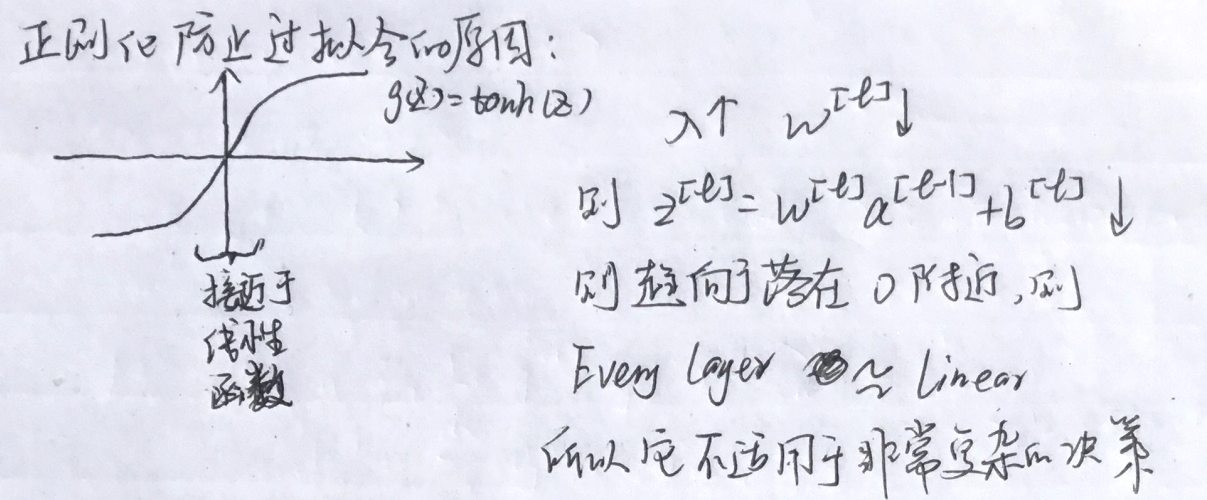 正则化防止过拟合的原因：
g(z)=tanh(z)
接近于
线性
函数
λ↑ w^[l]↓
则 z^[l]=w^[l]a^[l-1]+b^[l]↓
则趋向于落在0附近，则
Every layer ≃ linear
所以它不适用于非常复杂的决策